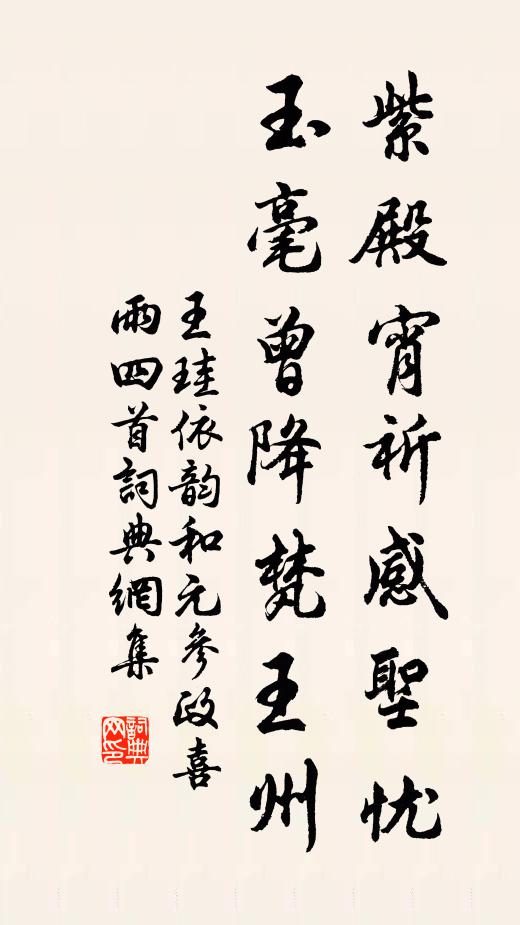 紫殿宵祈感聖忧
玉毫曾降梵王州
王珪依韵和元參政喜
雨四首詞典網集
詞典网印